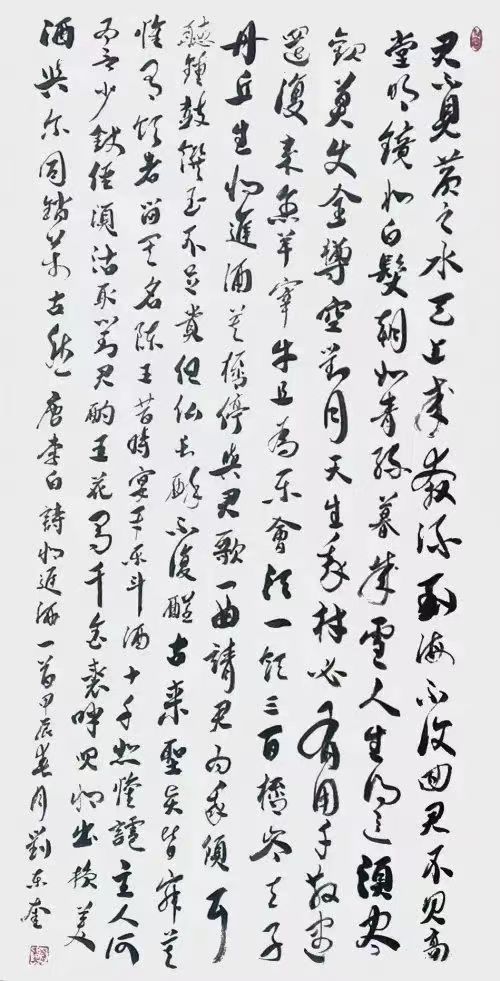 君不見黄之水天上來奔流到海不復回君不見高
堂明鏡悲白髮朝如青絲暮成雪人生得意須盡
歡莫使金樽空對月天生我材必有用千散盡
還復來烹羊宰牛且為樂會須一飲三百杯岑夫子
丹丘生將進酒莫杯停與君歌一曲請君為我傾耳
聽鍾鼓饌玉不足貴但願長醉不復醒古來聖賢皆寂莫
惟有飲者留其名陳王昔時宴平樂斗酒十千恣懽謔主人何
為言少錢徑須沽取對君酌五花馬千金裘呼兒將出換美
酒與爾同銷萬古愁 唐李白詩將進酒一首甲辰春月劉東奎